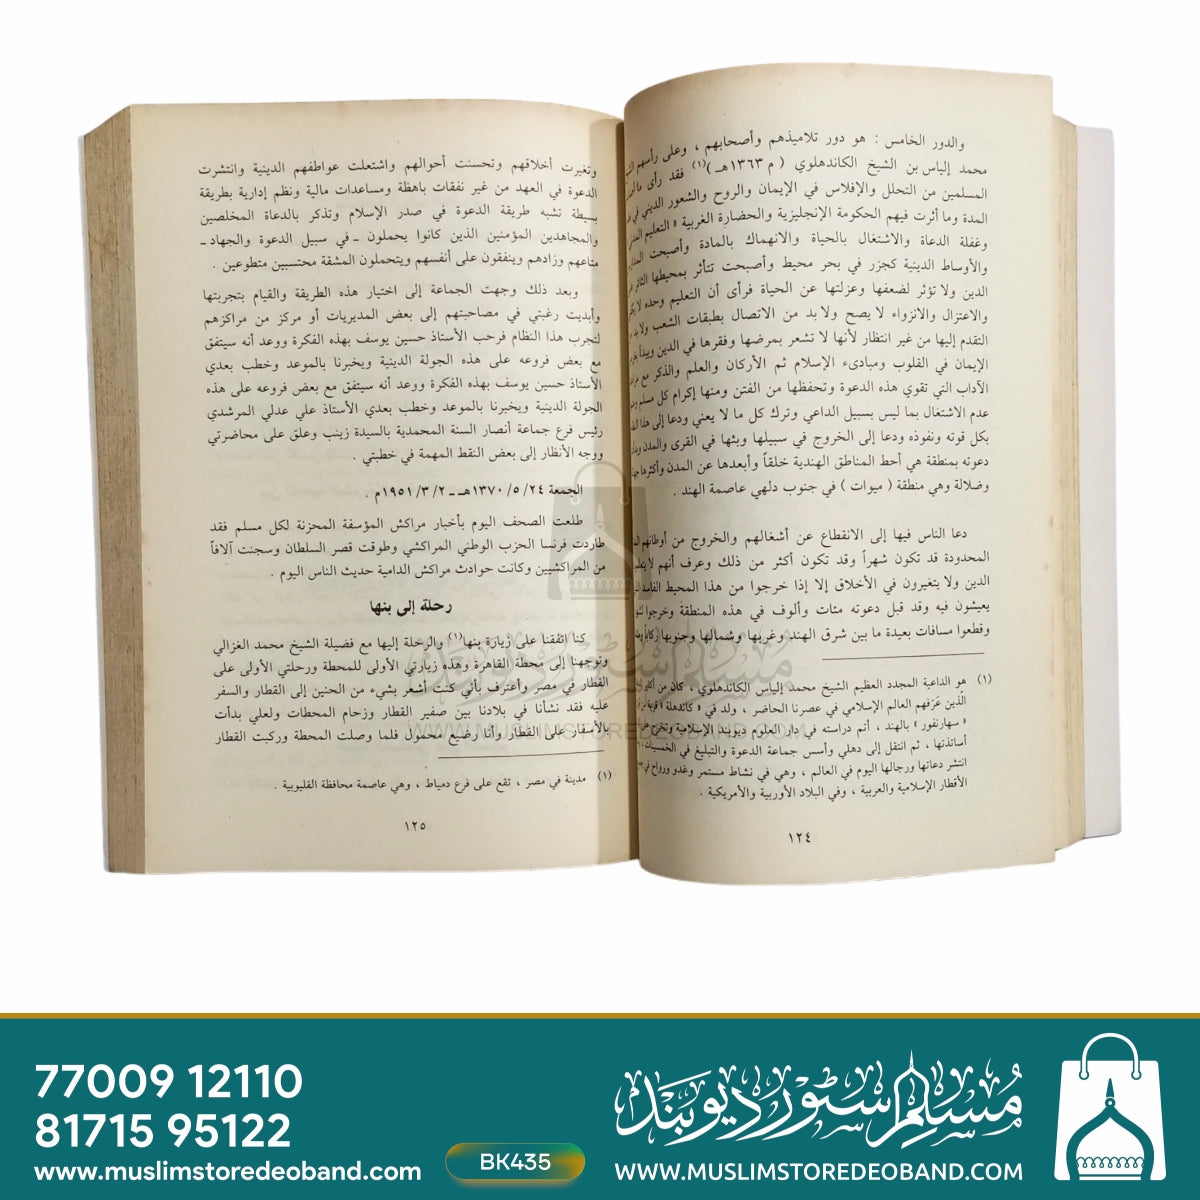 والدور الخامس : هو دور تلاميذهم وأصحابهم ، وعلى رأسهم
محمد إلياس بن الشيخ الكاندهلوي ( م ١٣٦٣هـ )(١) فقد رأى ما
المسلمين من التحلل والإفلاس في الإيمان والروح والشعور الديني في
المدة وما أثرت فيهم الحكومة الإنجليزية والحضارة الغربية « التعليم
وغفلة الدعاة والاشتغال بالحياة والانهماك بالمادة وأصبحت
والأوساط الدينية كجزر في بحر محيط وأصبحت تتأثر بمحيطها الثائر
الدين ولا تؤثر لضعفها وعزلتها عن الحياة فرأى أن التعليم وحده لا
والاعتزال والانزواء لا يصح ولا بد من الاتصال بطبقات الشعب ولا بد
التقدم إليها من غير انتظار لأنها لا تشعر بمرضها وفقرها في الدين ويبدأ
الإيمان في القلوب ومبادىء الإسلام ثم الأركان والعلم والذكر مع
الآداب التي تقوي هذه الدعوة وتحفظها من الفتن ومنها إكرام كل مسلم
عدم الاشتغال بما ليس بسبيل الداعي وترك كل ما لا يعني ودعا إلى هذا
بكل قوته ونفوذه ودعا إلى الخروج في سبيلها وبثها في القرى والمدن
دعوته بمنطقة هي أحط المناطق الهندية خلقاً وأبعدها عن المدن وأكثرها
وضلالة وهي منطقة ( ميوات ) في جنوب دلهي عاصمة الهند .
دعا الناس فيها إلى الانقطاع عن أشغالهم والخروج من أوطانهم
المحدودة قد تكون شهراً وقد تكون أكثر من ذلك وعرف أنهم لا
الدين ولا يتغيرون في الأخلاق إلا إذا خرجوا من هذا المحيط الفاسد
يعيشون فيه وقد قبل دعوته مئات وألوف في هذه المنطقة وخرجوا
وقطعوا مسافات بعيدة ما بين شرق الهند وغربها وشمالها وجنوبها
(١) هو الداعية المجدد العظيم الشيخ محمد إلياس الكاندهلوي ، كان من
الّذين عَرَفهم العالم الإسلامي في عصرنا الحاضر ، ولد في « كاندهلة » قرية
« سهارنفور » بالهند ، أتم دراسته في دار العلوم ديوبند الإسلامية وتخرج
أساتذتها ، ثم انتقل إلى دهلي وأسس جماعة الدعوة والتبليغ في
انتشر دعاتها ورجالها اليوم في العالم ، وهي في نشاط مستمر وغدو ورواح في
الأقطار الإسلامية والعربية ، وفي البلاد الأوربية والأمريكية .
١٢٤
وتغيرت أخلاقهم وتحسنت أحوالهم واشتعلت عواطفهم الدينية وانتشرت
الدعوة في العهد من غير نفقات باهظة ومساعدات مالية ونظم إدارية بطريقة
بسيطة تشبه طريقة الدعوة في صدر الإسلام وتذكر بالدعاة المخلصين
والمجاهدين المؤمنين الذين كانوا يحملون ـ في سبيل الدعوة والجهاد ـ
متاعهم وزادهم وينفقون على أنفسهم ويتحملون المشقة محتسبين متطوعين .
وبعد ذلك وجهت الجماعة إلى اختيار هذه الطريقة والقيام بتجربتها
وأبديت رغبتي في مصاحبتهم إلى بعض المديريات أو مركز من مراكزهم
لتجرب هذا النظام فرحب الأستاذ حسين يوسف بهذه الفكرة ووعد أنه سيتفق
مع بعض فروعه على هذه الجولة الدينية ويخبرنا بالموعد وخطب بعدي
الأستاذ حسين يوسف بهذه الفكرة ووعد أنه سيتفق مع بعض فروعه على هذه
الجولة الدينية ويخبرنا بالموعد وخطب بعدي الأستاذ علي عدلي المرشدي
رئيس فرع جماعة أنصار السنة المحمدية بالسيدة زينب وعلق على محاضرتي
ووجه الأنظار إلى بعض النقط المهمة في خطبتي .
الجمعة ٢٤/ ٥/ ١٣٧٠هـ ـ ٢/ ٣/ ١٩٥١م .
طلعت الصحف اليوم بأخبار مراكش المؤسفة المحزنة لكل مسلم فقد
طاردت فرنسا الحزب الوطني المراكشي وطوقت قصر السلطان وسجنت آلافاً
من المراكشيين وكانت حوادث مراكش الدامية حديث الناس اليوم .
رحلة إلى بنها
كنا اتفقنا على زيارة بنها(١) والرحلة إليها مع فضيلة الشيخ محمد الغزالي
وتوجهنا إلى محطة القاهرة وهذه زيارتي الأولى للمحطة ورحلتي الأولى على
القطار في مصر وأعترف بأني كنت أشعر بشيء من الحنين إلى القطار والسفر
عليه فقد نشأنا في بلادنا بين صفير القطار وزحام المحطات ولعلي بدأت
بالأسفار على القطار وأنا رضيع محمول فلما وصلت المحطة وركبت القطار
(١) مدينة في مصر ، تقع على فرع دمياط ، وهي عاصمة محافظة القليوبية .
١٢٥
مسلم سٹور دیوبند
WWW.MUSLIMSTOREDEOBAND.COM
77009 12110
81715 95122
www.muslimstoredeoband.com
BK435
مسلم سٹور دیوبند
WWW.MUSLIMSTOREDEOBAND.COM